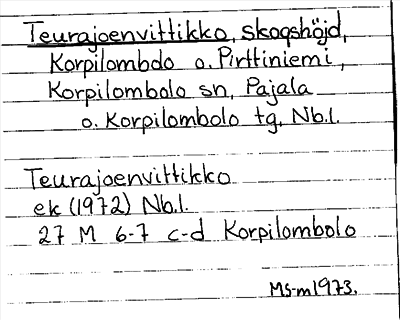 Teurajoenvittikko, skogshöjd,
Korpilombolo o. Pirttiniemi,
Korpilombolo sn, Pajala
o. Korpilombolo tg, Nb.l.
Teurajoenvittikko
ek (1972) Nb.l.
27 M 6-7 c-d Korpilombolo
MS-m1973.